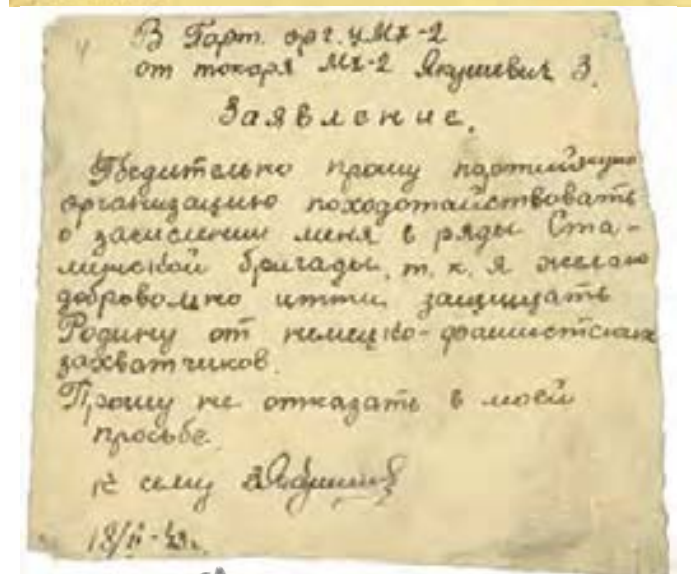 В Парт. орг. ц. МХ-2
от токаря МХ-2 Якушевич З.
Заявление.
Убедительно прошу партийную
организацию походотайствовать
о зачислении меня в ряды Ста-
линской бригады, т. к. я желаю
добровольно итти защищать
Родину от немецко-фашистских
захватчиков.
Прошу не отказать в моей
просьбе.
К сему
18/II-43г.